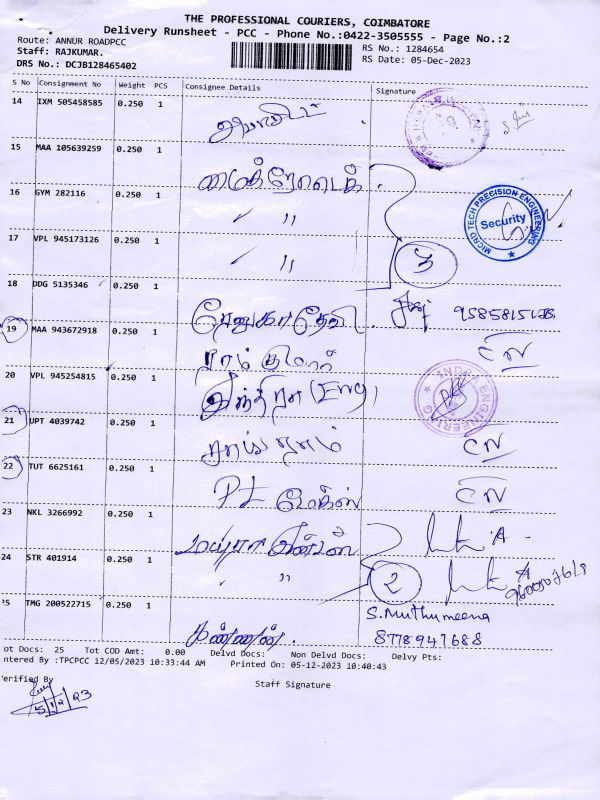 THE PROFESSIONAL COURIERS, COIMBATORE
Delivery Runsheet - PCC - Phone No.:0422-3505555 - Page No.:2
Route: ANNUR ROADPCC
RS No.: 1284654
Staff: RAJKUMAR.
RS Date: 05-Dec-2023
DRS No.: DCJB128465402
S No Consignment No Weight PCS Consignee Details Signature
14 IXM 505458585 0.250 1
15 MAA 105639259 0.250 1
மைக்ரோடெக்
16 GYM 282116 0.250 1
〃
MICRO TECH PRECISION ENGINEERING
Security
17 VPL 945173126 0.250 1
〃 3
18 DDG 5135346 0.250 1
ரேணுகா தேவி
19 MAA 943672918 0.250 1
ராம் குமார்
20 VPL 945254815 0.250 1
இந்திரா (Eng)
ENGINEERING
21 UPT 4039742 0.250 1
22 TUT 6625161 0.250 1
PL மேக்ஸ்
23 NKL 3266992 0.250 1
24 STR 401914 0.250 1
〃 2
25 TMG 200522715 0.250 1
S. Muthumeena
கண்ணன்.
8778947688
ot Docs: 25 Tot COD Amt: 0.00 Delvd Docs: Non Delvd Docs: Delvy Pts:
ntered By :TPCPCC 12/05/2023 10:33:44 AM Printed On: 05-12-2023 10:40:43
Verified By
Staff Signature
5/12/23